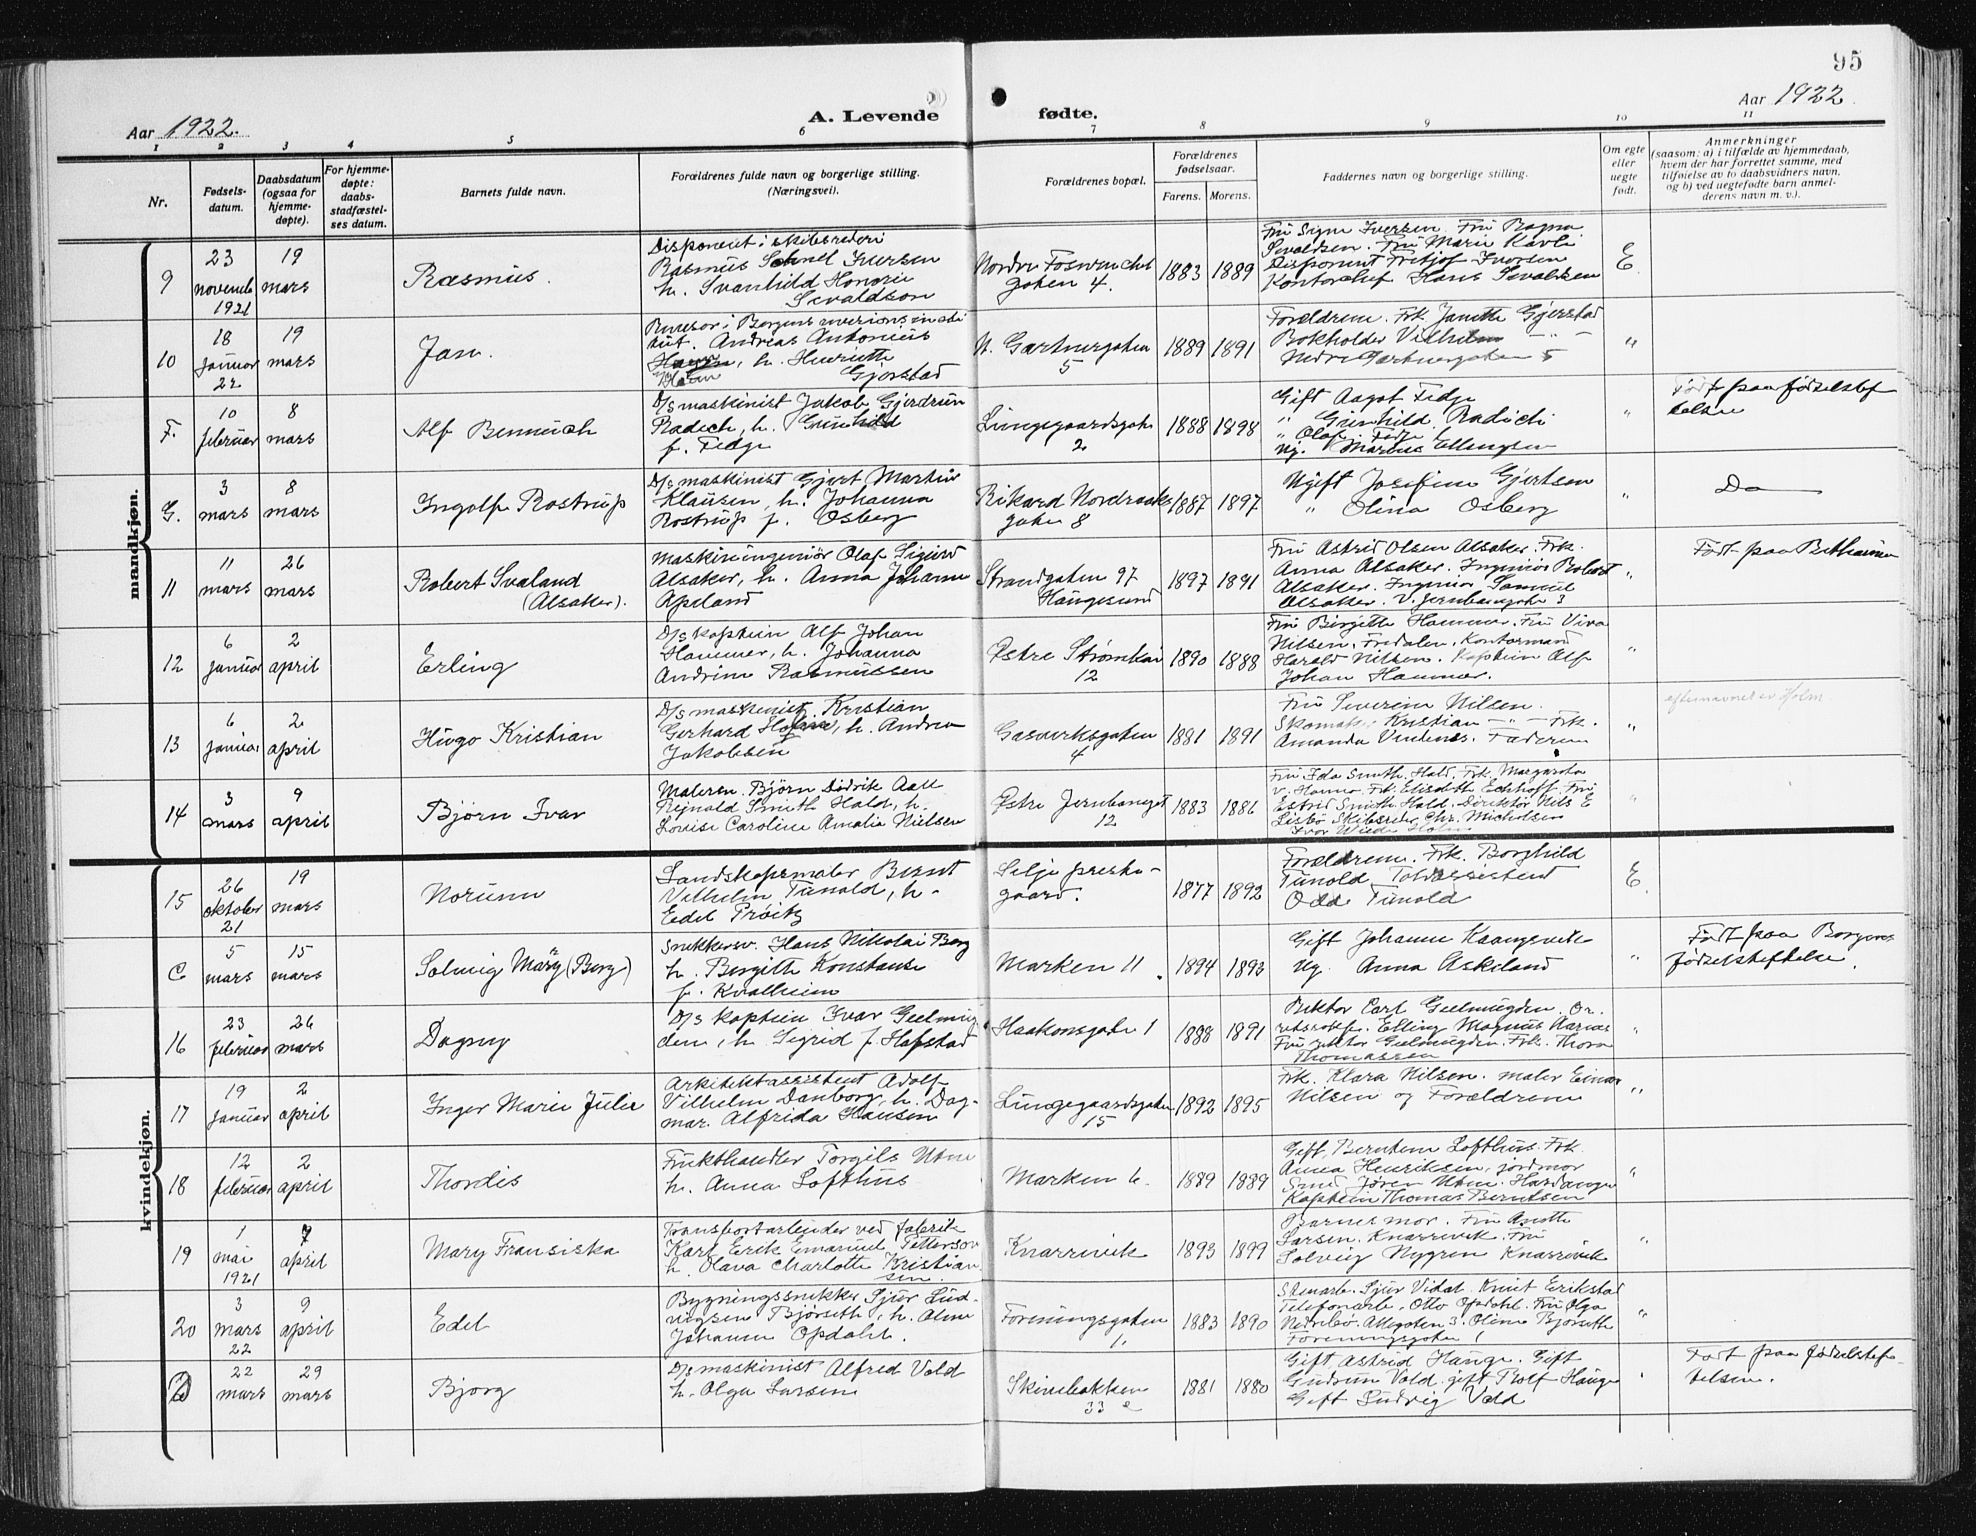 95
Aar 1922.
A. Levende
fødte.
Aar 1922.
1 2 3 4 5 6 7 8 9 10 11
Nr.
Fødsels-
datum.
Daabsdatum
(ogsaa for
hjemme-
døpte).
For hjemme-
døpte:
daabs-
stadfæstel-
ses datum.
Barnets fulde navn.
Forældrenes fulde navn og borgerlige stilling.
(Næringsvei).
Forældrenes bopæl.
Forældrenes
fødselsaar.
Farens. Morens.
Faddernes navn og borgerlige stilling.
Om egte
eller
uegte
født.
Anmerkninger
(saasom: a) i tilfælde av hjemmedaab,
hvem der har forrettet samme, med
tilføielse av to daabsvidners navn,
og b) ved uegtefødte barn anmel-
derens navn m. v.).
mandkjøn.
9
23
novemb
1921
19
mars
Rasmus.
Disponent i skibsrederi
Rasmus Iversen
h. Svanhild Honorie
Sevaldson
Nordre
gaten 4.
1883 1889
Fru Signe Iversen. Fru Ragna
Sevaldsen. Fru Marie Kavli
Disponent Fritjof Iversen
Kontorchef Hans Sevaldsen
E.
10
18
Januar
22
19
mars
Jan.
Revisor i Bergens revisionsinsti
tut. Andreas Antonius
h. Henriette
Gjerstad
N. Gartnergaten
5
1889 1891
Forældrene. Frk. Janette Gjerstad
Bokholder Vilhelm - " -
Nedre Gartnergaten 5
"
F.
10
februar
8
mars
Alf Bennich
D/s maskinist Jakob Gjerdrum
Radich, h. Gunhild
f. Fedje
Lungegaardsgate
2
1888 1898
Gift Aagot Fedje
" Gunhild Radich
" Olaf Fedje
Ug. Marius Ellingsen
"
Født paa fødselsstif
telsen
G.
3
mars
8
mars
Ingolf Rostrup
D/s maskinist Gjert Martin
Klausen, h. Johanna
Rostrup f. Osberg
Rikard Nordraaks
gaten 8
1887 1897
Ugift Josefine Gjertsen
" Olina Osberg
"
Do
11
11
mars
26
mars
Robert Svaland
(Alsaker).
Maskiningeniør Olaf Sigurd
Alsaker, h. Anna Johanne
Apeland
Strandgaten 97
Haugesund
1897 1891
Fru Astrid Olsen Alsaker. Frk.
Anna Alsaker. Ingeniør Robert
Alsaker. Ingeniør Samuel
Alsaker. V. Jernbanegate 3
"
Født paa Bethanien
12
6
januar
2
april
Erling
D/s kaptein Alf Johan
Hammer, h. Johanna
Andrine Rasmussen
Østre Strømkai
12
1890 1888
Fru Birgitte Hammer. Fru Viva
Nilsen, Fredalen. Kontormand
Harald Nilsen. Kaptein Alf
Johan Hammer.
"
13
6
januar
2
april
Hugo Kristian
D/s maskinist Kristian
Gerhard h. Andrea
Jakobsen
Gasverksgaten
4
1881 1891
Fru Severine Nilsen.
Skomak. Kristian - " - Frk.
Amanda Vindenes. Faderen
"
efternavnet er Holm.
14
3
mars
9
april
Bjørn Ivar
Maleren. Bjørn Didrik Aall
Rejnald Smith Hald, h.
Louise Caroline Amalia Nielsen
Østre Jernbanegt
12
1883 1886
Fru Ida Smith. Hald. Frk. Margareta
v. Hanno. Frk. Elisabeth Eckhoff. Fru
Estrid Smith. Hald. Direktør Nils E
Lisbø Skibsreder Chr. Michelsen
Ivar Wiede Holm
"
kvindekjøn.
15
26
oktober
21
19
mars
Norunn
Landskapsmaler Bernt
Vilhelm Tunold, h.
Edel Prøitz
Selje preste-
gaard.
1877 1892
Forældrene. Frk. Borghild
Tunold. Toldassistent
Odd Tunold
E.
C
5
mars
15
mars
Solveig Mary (Berg)
Snikkersv. Hans Nikolai Berg
h. Bergitte Konstanse
f. Kvalheim
Marken 11
1894 1893
Gift Johanne Kaangsvik
Ug. Anna Askeland
"
Født paa Bergens
fødselstiftelse.
16
23
februar
26
mars
Dagny
D/s kaptein Ivar Geelmuy
den, h. Sigrid f. Hofstad
Haakonsgate 1
1888 1891
Rektor Carl Geelmuyden. Or.
retssakf. Elling Magnus Aarnes
Fru rektor Geelmuyden. Frk. Thora
Thomassen
"
17
19
januar
2
april
Inger Marie Julie
Arkitektassistent Adolf
Vilhelm Danborg, h. Dag-
mar. Alfrida Hansen
Lungegaardsgaten
15
1892 1895
Frk. Klara Nilsen. maler Einar
Nilsen og Forældrene
"
18
12
februar
2
april
Thordis
Frukthandler Torgils Utne
h. Anna Lofthus
Marken 6.
1889 1889
Gift, Berntine Lofthus. Frk.
Anna Henriksen, jordmor
Smed Jøren Utne. Hardanger
Kaptein Thomas Berntsen
"
19
1
mai
1921
7
april
Mary Fransiska
Transportarbeider ved fabrik
Karl Erik Emanuel Petterson
h. Olava Charlotte Kristian
sen.
Knarrevik
1893 1899
Barnets mor. Fru Anette
Larsen. Knarrevik. Fru
Solveig Nygren Knarrevik
"
20
3
mars
22
9
april
Edel
Bygningssnekker Sjur Lud-
vigsen Bjørseth, h. Aline
Johanne Opdahl.
Foreningsgaten
1,
1883 1890
Stenarb. Sjur Vidal. Knut Erikstad
Telefonarb. Otto Opdahl. Fru Olga
Nedrebø. Allegaten 3. Oline Bjørseth
Foreningsgaten 1
"
D
22
mars
29
mars
Bjorg
D/s maskinist Alfred Vold
h. Olga Larsen
Skivebakken
33 e
1881 1880
Gift, Astrid Hauge. Gift
Gudrun Vold. gift Rolf Hauge
Gift Ludvig Vold
"
Født paa fødselsstif-
telsen.